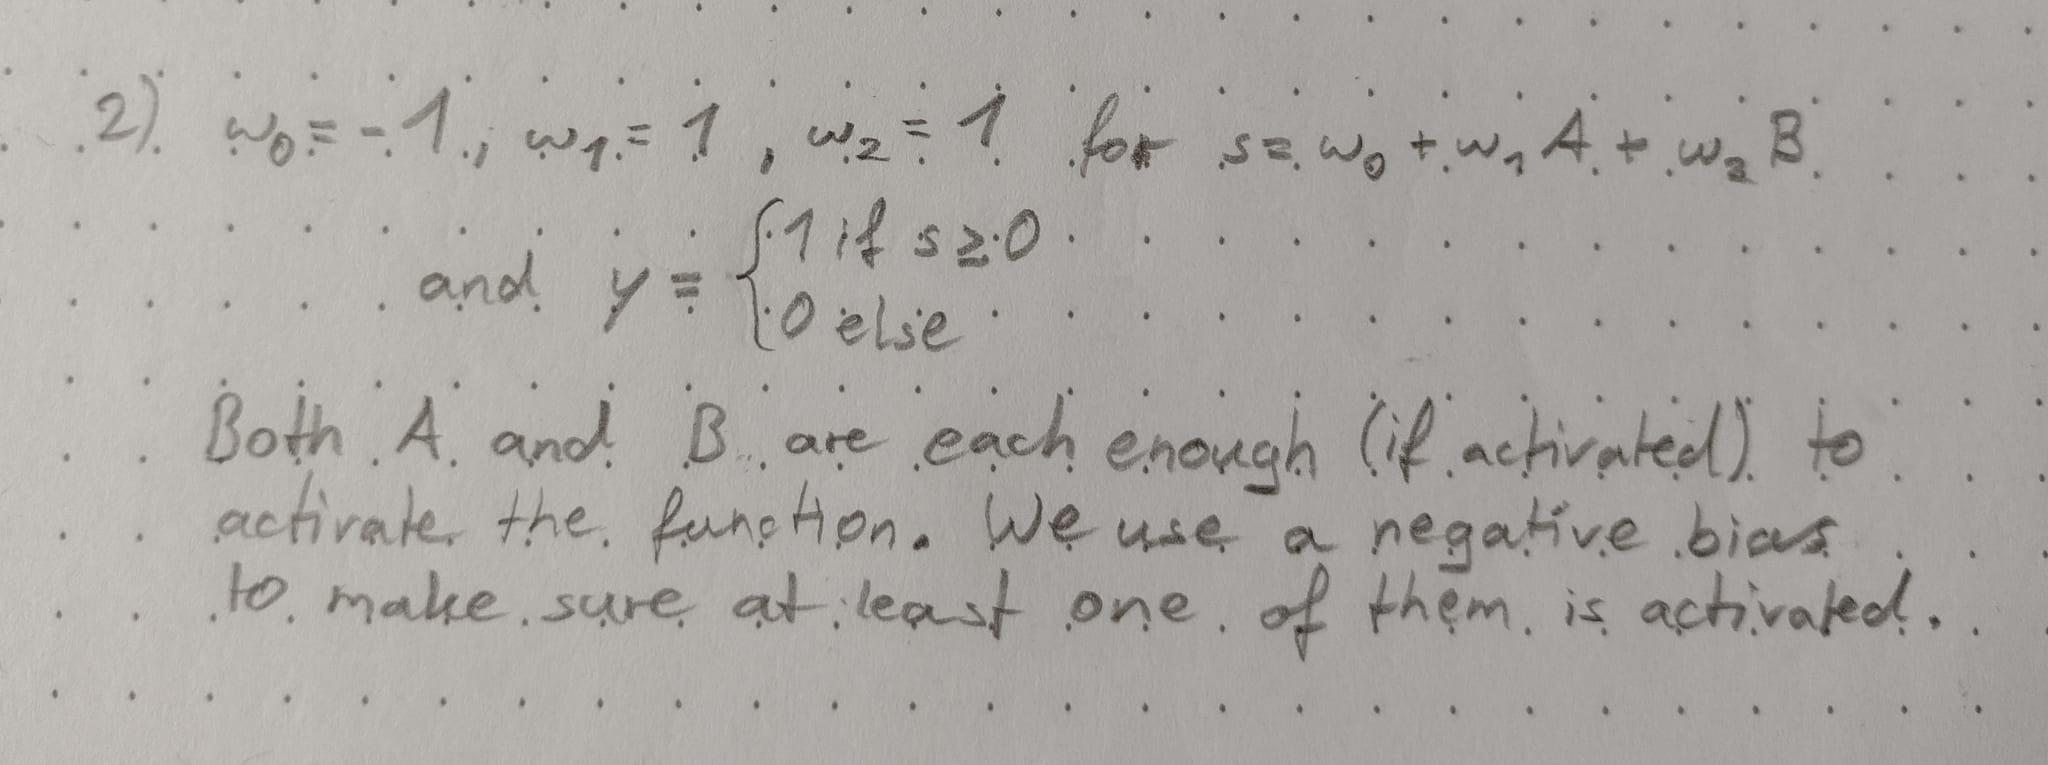 2) w₀ = -1, w₁ = 1, w₂ = 1 for s = w₀ + w₁ A + w₂ B
and y = { 1 if s ≥ 0
0 else
Both A and B are each enough (if activated) to
activate the function. We use a negative bias
to make sure at least one of them is activated.